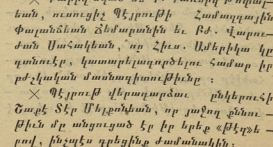 եան, ուսուցիչ Պէյրութի Համազգային
Փալանճեան Ճեմարանին եւ Բժ. Վարու-
ժան Սահակեան, որ Հիւս. Ամերիկա կը
գտնուէր, կատարելագործելու համար իր
բժշկական մասնագիտութիւնը ։
× Պէյրութ վերադարձաւ ընկերուհի
Շաքէ Տէր Մելքոնեան, որ յաջող քննու-
թիւն մը անցուցած էր իր երեք «Թէզ»ե-
րով, ինչպէս գրեցինք ժամանակին։